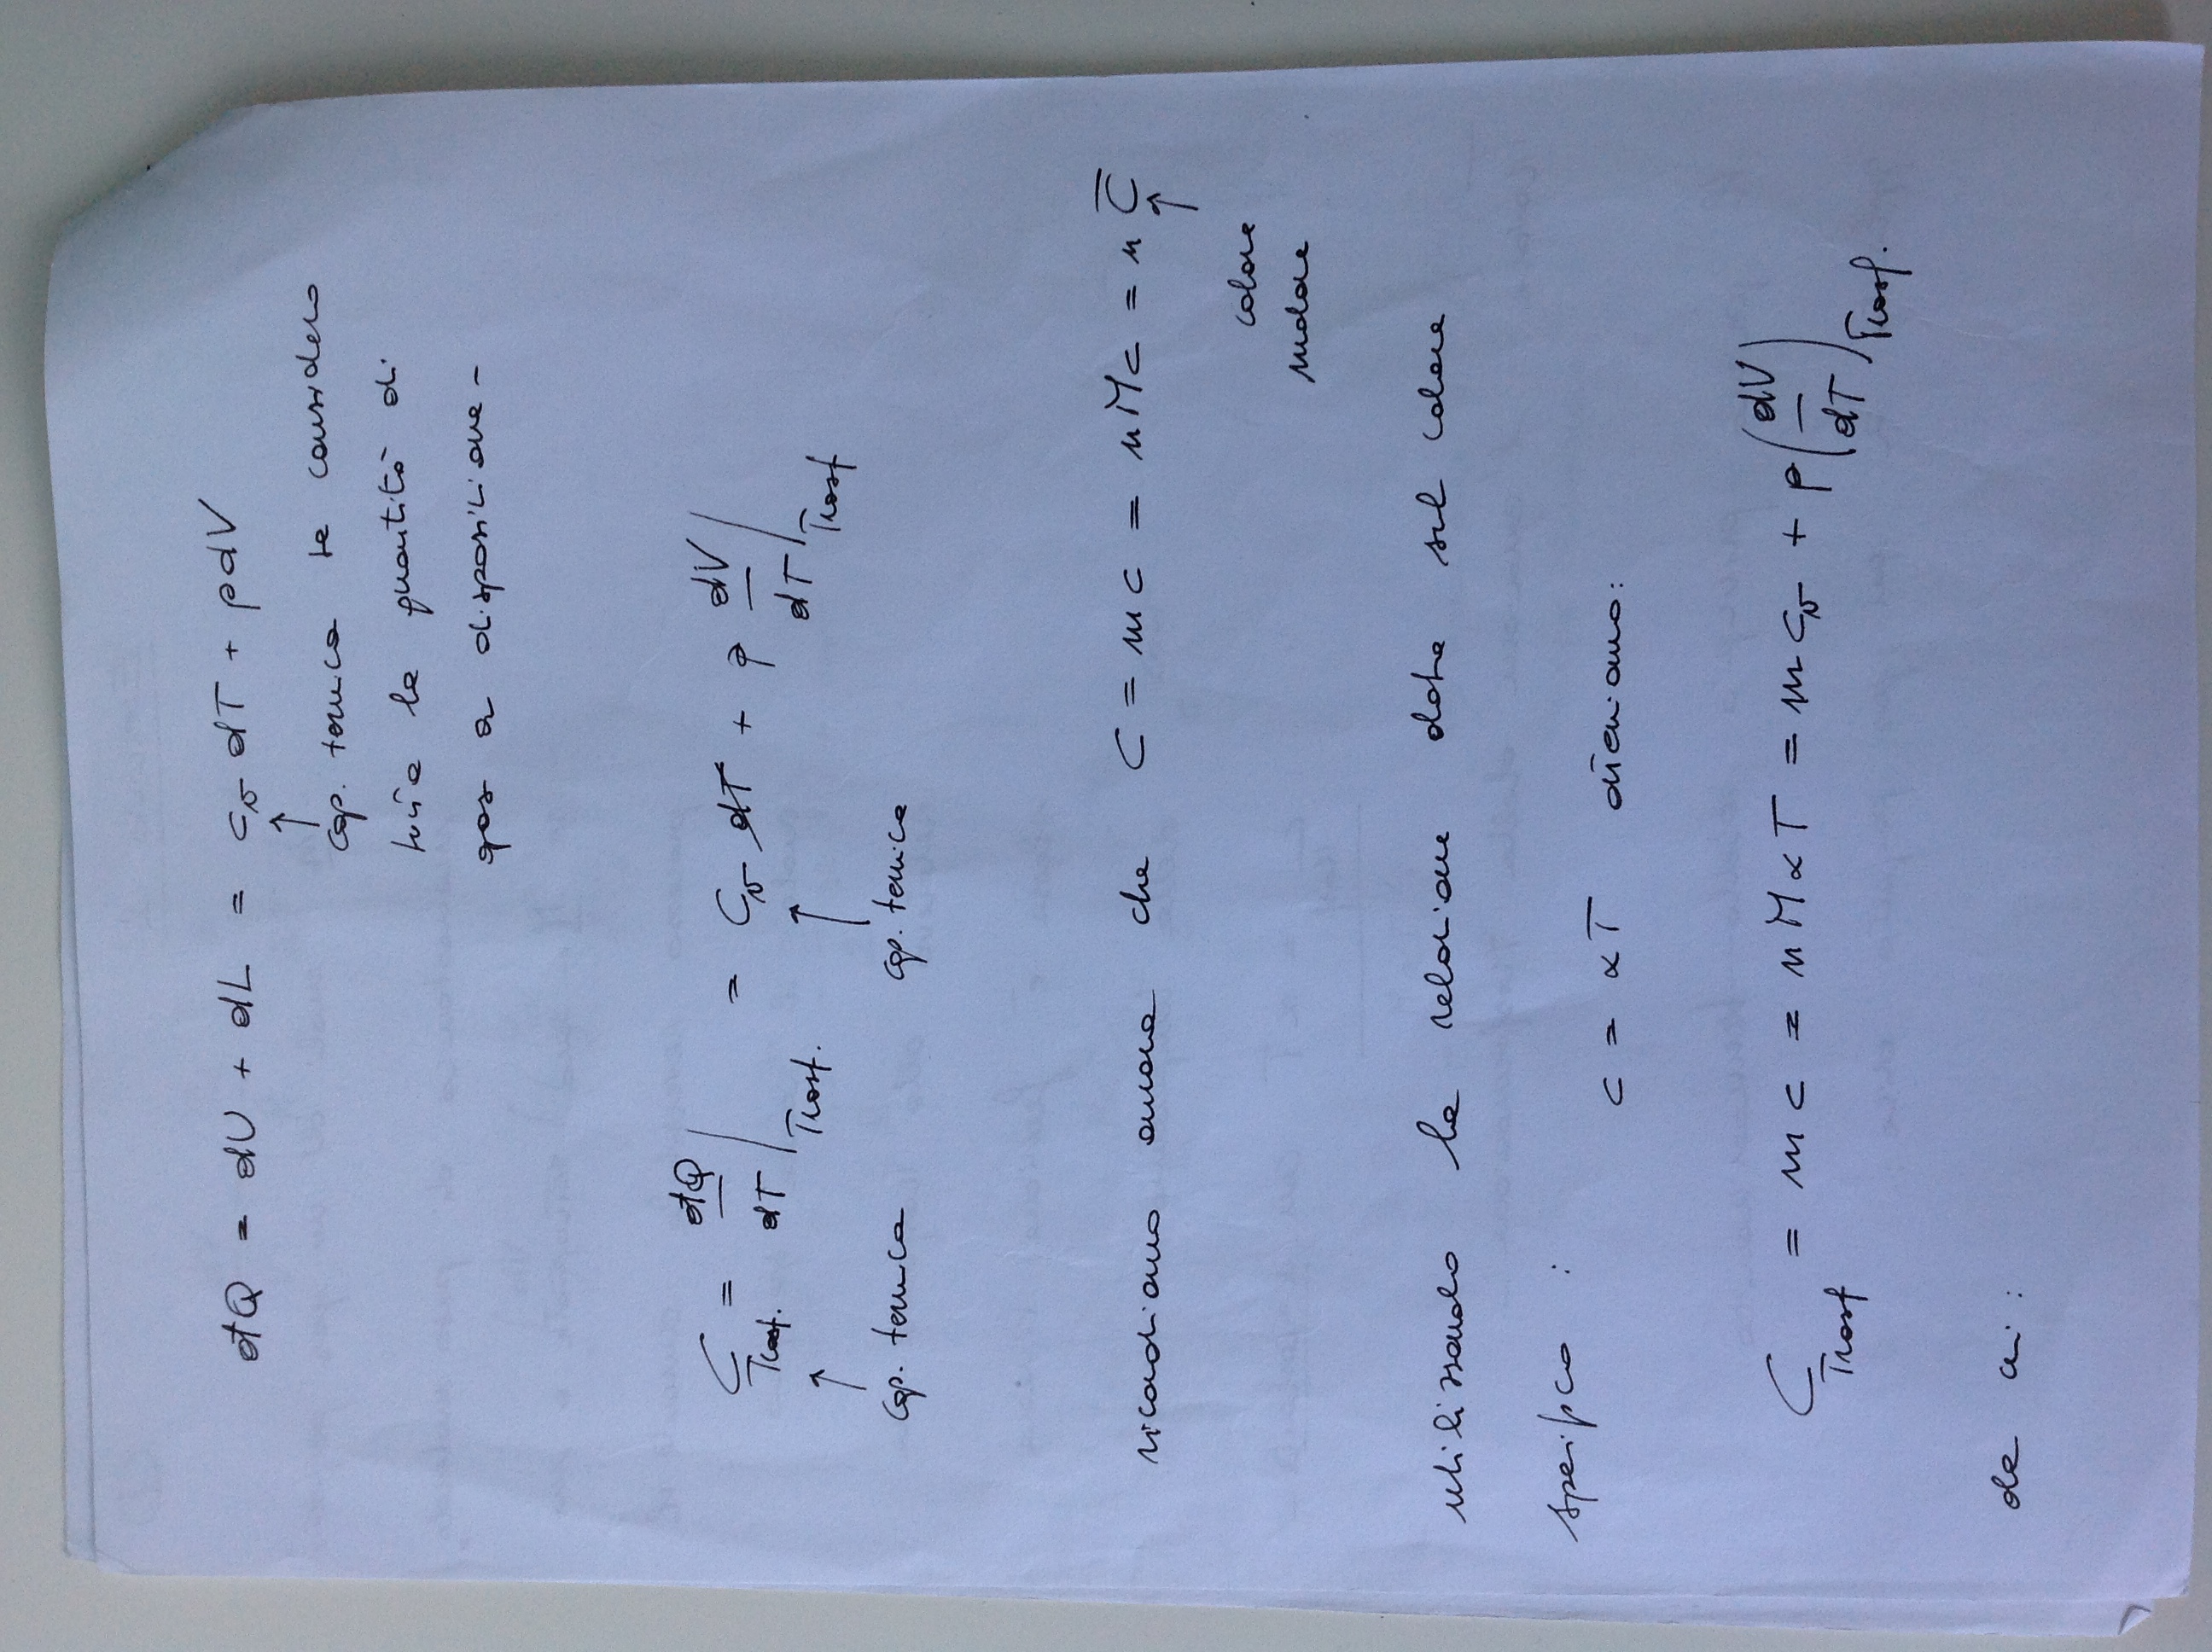 đQ = dU + dL = c_v dT + pdV
↑
cap. termica se considero
tutta la quantità di
gas a disposizione -
C_Trasf. = đQ/dT |_Trasf. = C_v d̶T̶ + p dV/dT |_Trasf
↑ ↑
cap. termica cap. termica
ricordiamo ancora che C = mc = nMc = n C̅
↑
calore
molare
utilizzando la relazione data sul calore
specifico :
c = αT otteniamo:
C_Trasf = mc = nMαT = mc_v + p(dV/dT)_Trasf.
da cui :